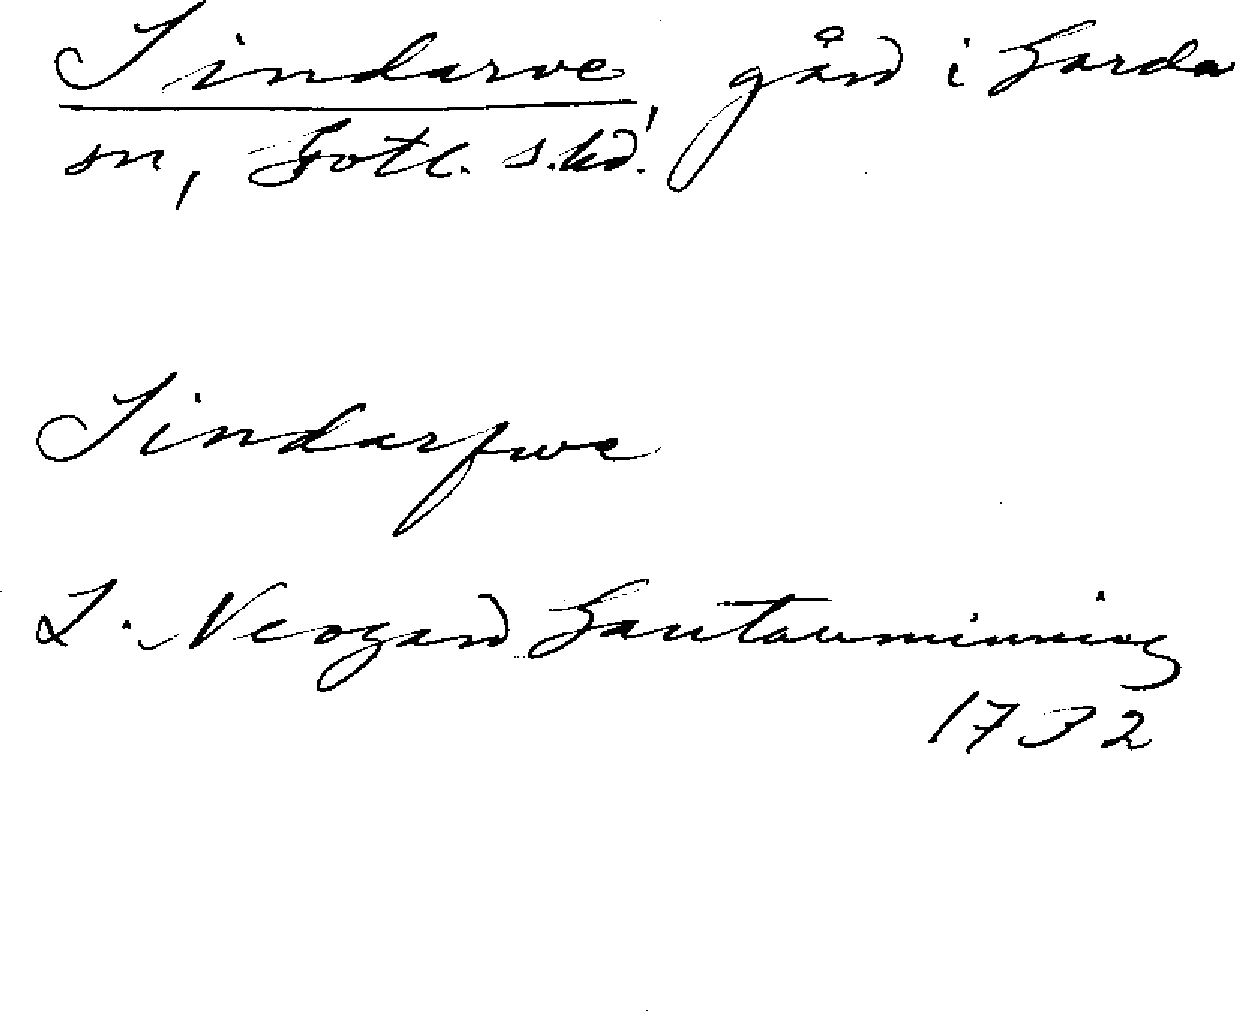 Sindarve, gård i Garda
sn, Gotl. s. hd.
Sindarfwe
L. Neogard Gautauminning
1732